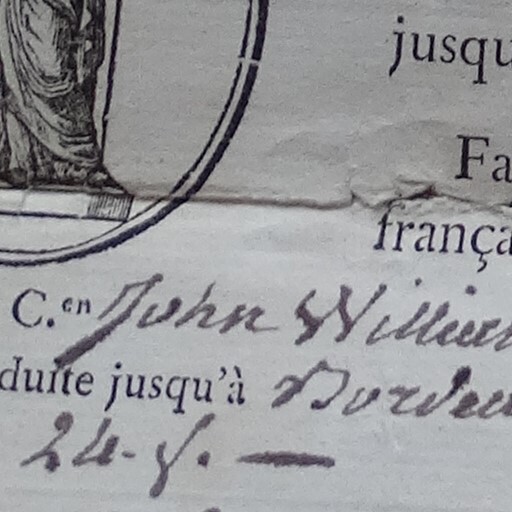 jusqu
Fa
frança
C.en John William
duite jusqu'à Bordeu
24. f. —